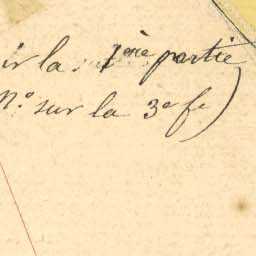 ir la 1ere partie
No sur la 3e fe)